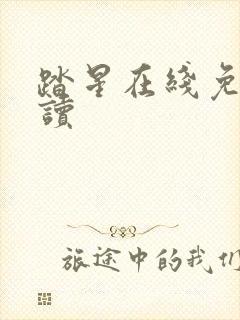 踏星在綫免
讀
旅途中的我们